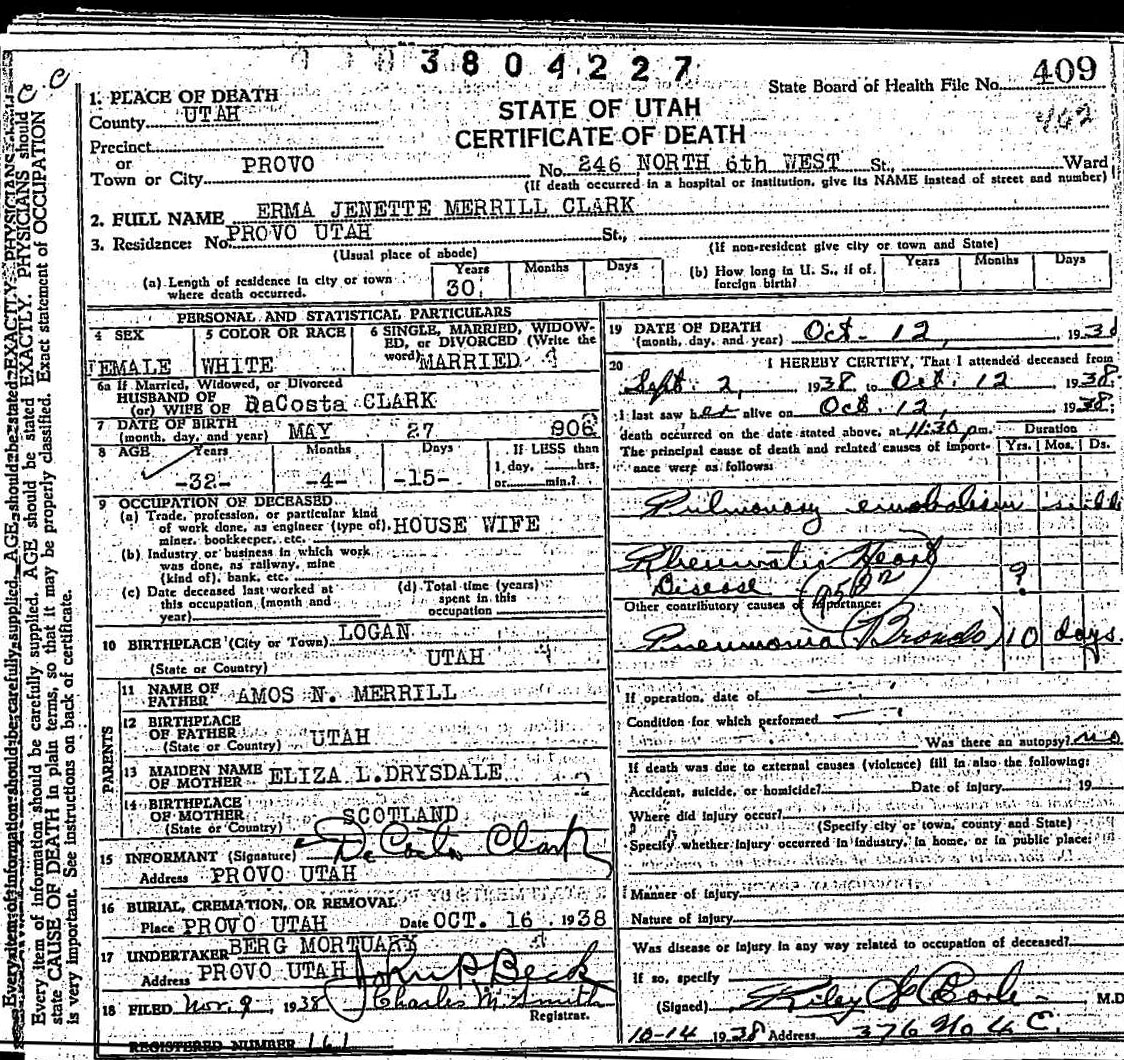 3804227
State Board of Health File No. 409
462
C.C
1. PLACE OF DEATH
County UTAH
STATE OF UTAH
CERTIFICATE OF DEATH
Precinct
or
Town or City PROVO No. 246 NORTH 6th WEST St., Ward
(If death occurred in a hospital or institution, give its NAME instead of street and number)
2. FULL NAME ERMA JENETTE MERRILL CLARK
3. Residence: No. PROVO UTAH St.,
(Usual place of abode) (If non-resident give city or town and State)
(a) Length of residence in city or town where death occurred. Years 30 Months Days
(b) How long in U. S., if of foreign birth? Years Months Days
PERSONAL AND STATISTICAL PARTICULARS
4 SEX 5 COLOR OR RACE 6 SINGLE, MARRIED, WIDOW-
ED, or DIVORCED (Write the
word) MARRIED
FEMALE WHITE
6a If Married, Widowed, or Divorced
HUSBAND OF
(or) WIFE OF DaCosta CLARK
7 DATE OF BIRTH
(month, day, and year) MAY 27 906
8 AGE Years Months Days If LESS than
1 day, hrs.
or min.?
-32- -4- -15-
9 OCCUPATION OF DECEASED
(a) Trade, profession, or particular kind
of work done, as engineer (type of), HOUSE WIFE
miner, bookkeeper, etc.
(b) Industry or business in which work
was done, as railway, mine
(kind of), bank, etc.
(c) Date deceased last worked at
this occupation (month and
year)
(d) Total time (years)
spent in this
occupation
10 BIRTHPLACE (City or Town) LOGAN
(State or Country) UTAH
PARENTS
11 NAME OF
FATHER AMOS N. MERRILL
12 BIRTHPLACE
OF FATHER
(State or Country) UTAH
13 MAIDEN NAME
OF MOTHER ELIZA L. DRYSDALE
14 BIRTHPLACE
OF MOTHER
(State or Country) SCOTLAND
15 INFORMANT (Signature) DeCosta Clark
Address PROVO UTAH
16 BURIAL, CREMATION, OR REMOVAL
Place PROVO UTAH Date OCT. 16 1938
17 UNDERTAKER BERG MORTUARY
Address PROVO UTAH John P Beck
18 FILED Nov. 9, 1938 Charles M. Smith
Registrar.
REGISTERED NUMBER 161
19 DATE OF DEATH
(month, day, and year) Oct - 12, 1938
20 I HEREBY CERTIFY, That I attended deceased from
Sept. 2, 1938 to Oct. 12 1938
I last saw her alive on Oct. 12, 1938;
death occurred on the date stated above, at 11:30 pm.
The principal cause of death and related causes of import-
ance were as follows:
Duration
Yrs. Mos. Ds.
Pulmonary embolism
Rheumatic Heart
Disease ?
Other contributory causes of importance:
Pneumonia (Broncho) 10 days.
If operation, date of
Condition for which performed
Was there an autopsy? no
If death was due to external causes (violence) fill in also the following:
Accident, suicide, or homicide? Date of injury 19
Where did injury occur?
(Specify city or town, county and State)
Specify whether injury occurred in industry, in home, or in public place:
Manner of injury
Nature of injury
Was disease or injury in any way related to occupation of deceased?
If so, specify
(Signed) M.D
10-14 1938 Address 376 No 4 C.
Every item of information should be carefully supplied. AGE should be stated EXACTLY. PHYSICIANS should
state CAUSE OF DEATH in plain terms, so that it may be properly classified. Exact statement of OCCUPATION
is very important. See instructions on back of certificate.